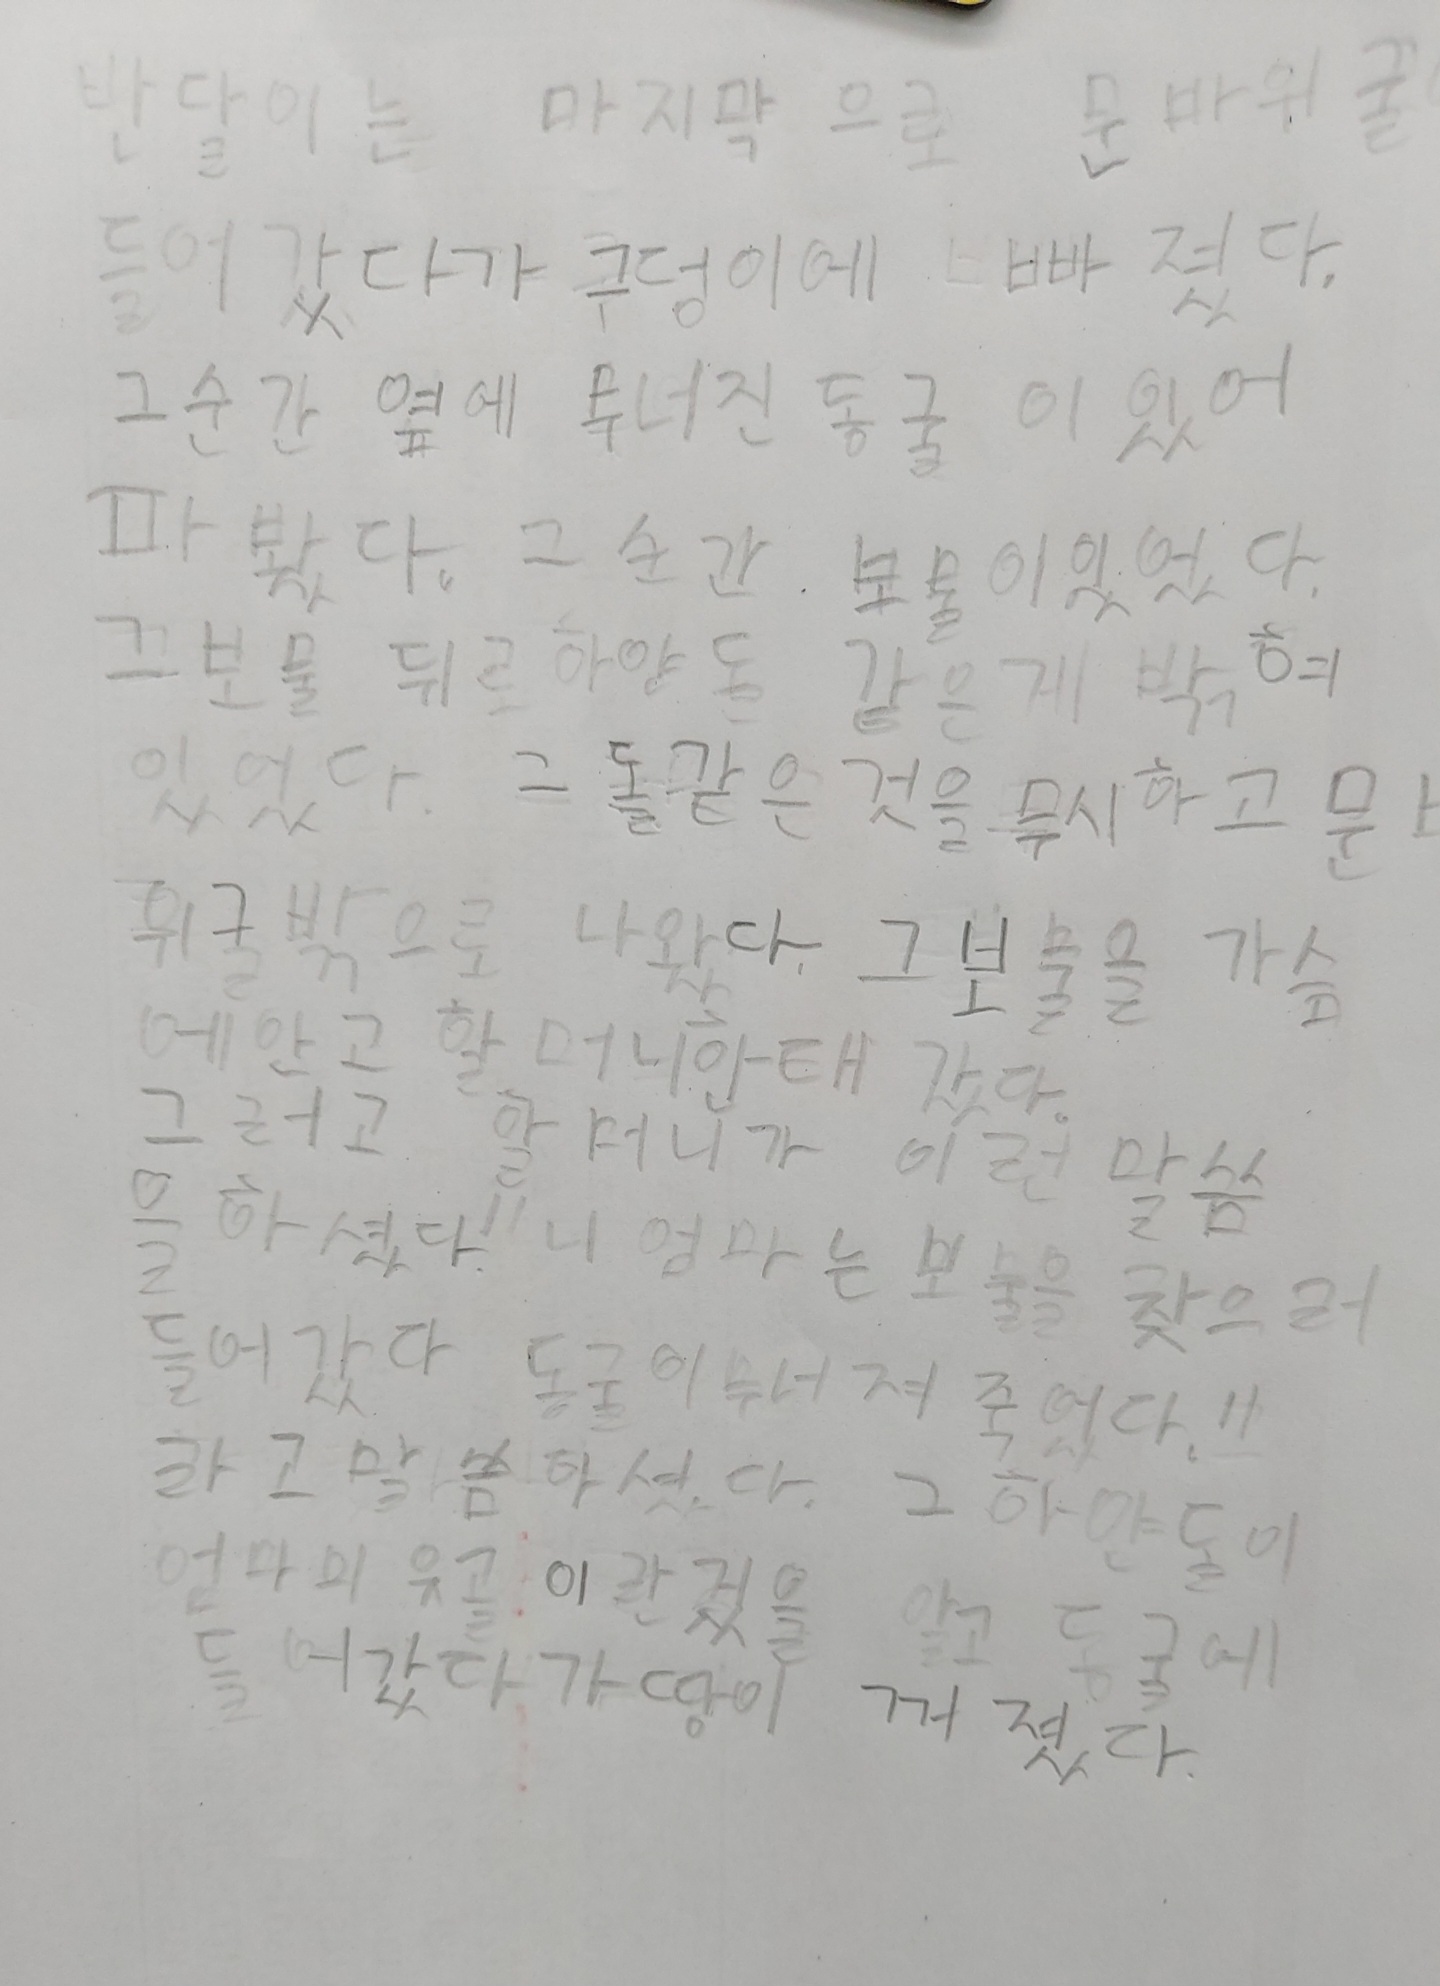 반달이는 마지막으로 문바위굴
들어갔다가 쿠덩이에 빠졌다.
그순간 옆에 무너진 동굴이있어
파봤다. 그순간 보물이있었다.
그보물 뒤로하얀돌 같은게 박혀
있었다. 그돌같은것을무시하고 문바
위굴밖으로 나왔다. 그보물을 가슴
에안고 할머니한태 갔다.
그러고 할머니가 이런 말씀
을하셨다." 니엄마는보물을 찾으러
들어갔다 동굴이무너져 죽었다."
라고말씀하셨다. 그하얀돌이
엄마의유골이란것을 알고 동굴에
들어갔다가땅이 꺼졌다.